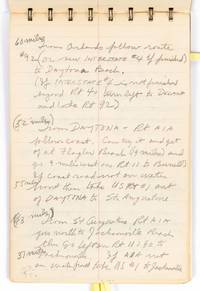 60 miles
From Orlando follow route
#92 (OR NEW INTERSTATE #4 if finished)
to Daytona Beach.
(If INTERSTATE #4 is not finished
beyond Rt 40 turn left to Deland
and take Rt 92)
(52 miles)
From DAYTONA - Rt A1A
follow coast. Can try it and get
off at Flagler Beach (19 miles) and
go 9 miles west on Rt 11 to Bunnell
If coast road not on water
55 miles
front then take US Rt #1 out
of DAYTONA to St. Augustine
(33 miles)
From St. Augustine Rt A1A
you will to Jacksonville Beach
then Go Left on Rt U.S. 90 to
37 miles
Jacksonville. If A1A not
on waterfront take US #1 to Jacksonville